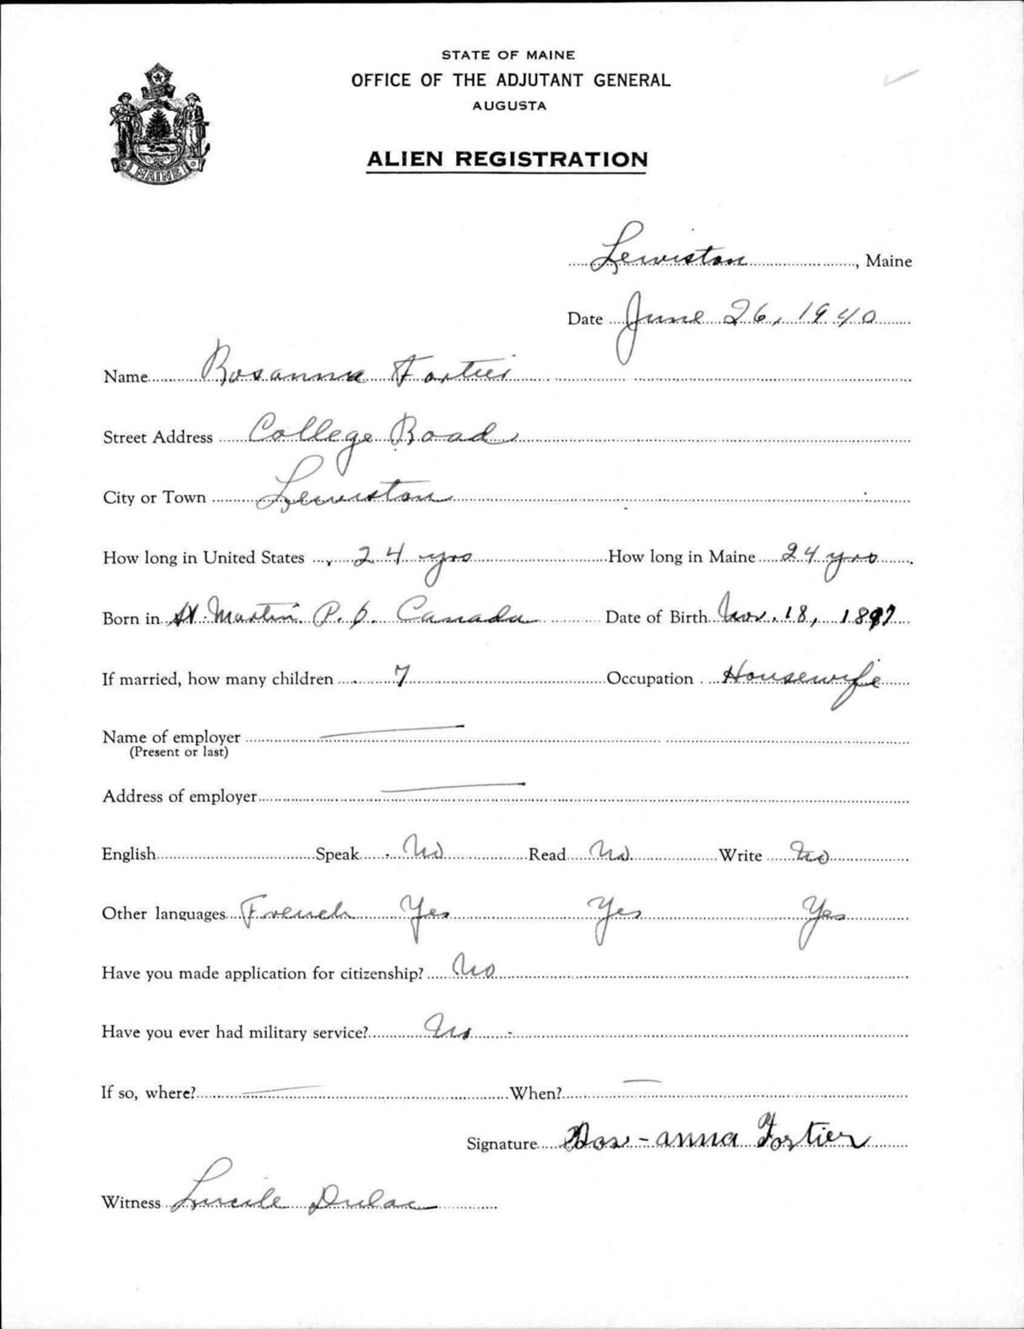 STATE OF MAINE
OFFICE OF THE ADJUTANT GENERAL
AUGUSTA
MAINE
ALIEN REGISTRATION
Lewiston, Maine
Date June 26, 1940
Name Rosanna Fortier
Street Address College Road
City or Town Lewiston
How long in United States 24 yrs How long in Maine 24 yrs
Born in St. Martin P. Q. Canada Date of Birth Nov. 18, 1897
If married, how many children 7 Occupation Housewife
Name of employer
(Present or last)
Address of employer
English Speak No Read No Write No
Other languages French Yes Yes Yes
Have you made application for citizenship? No
Have you ever had military service? No
If so, where? When?
Signature Rose-anna Fortier
Witness Lucile Dulac